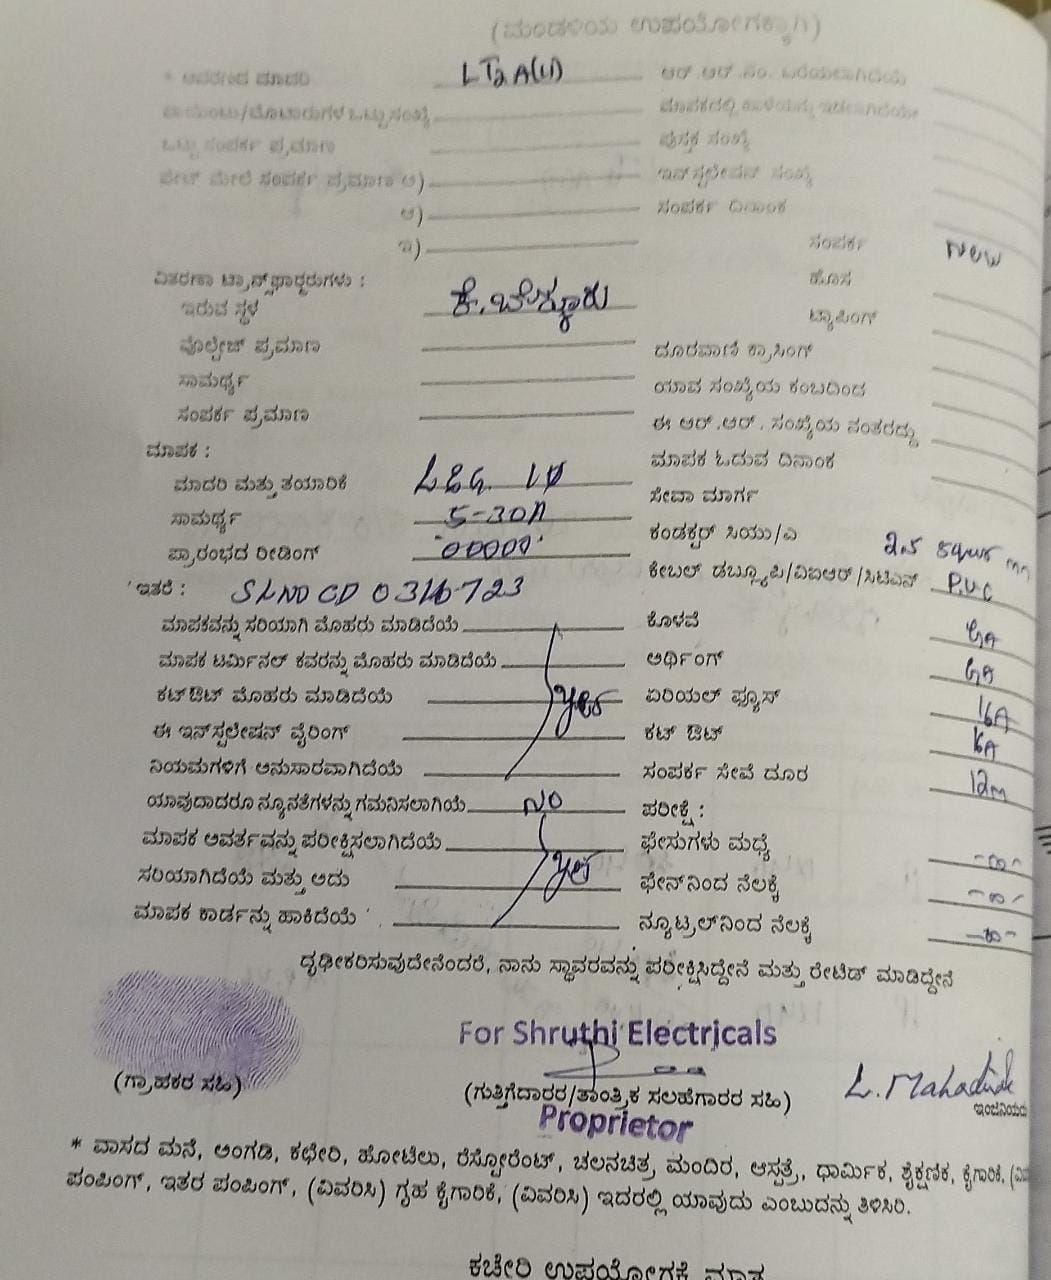 (ಮಂಡಳಿಯ ಉಪಯೋಗಕ್ಕಾಗಿ)
LT2A(ii) ಆರ್.ಆರ್.ನಂ. ಬರೆಯಲಾಗಿದೆಯೆ
ಮಾಪಕದಲ್ಲಿ
ಒಟ್ಟು ಸಂಪರ್ಕ ಪ್ರಮಾಣ ಪುಸ್ತಕ ಸಂಖ್ಯೆ
ಮೇಲೆ ಸಂಪರ್ಕ ಪ್ರಮಾಣ ಅ) ಇನ್‌ಸ್ಟಲೇಷನ್ ಸಂಖ್ಯೆ
ಆ) ಸಂಪರ್ಕ ದಿನಾಂಕ
ಇ) ಸಂಪರ್ಕ New
ವಿತರಣಾ ಟ್ರಾನ್ಸ್‌ಫಾರ್ಮರುಗಳು : ಹೊಸ
ಇರುವ ಸ್ಥಳ ಟ್ಯಾಪಿಂಗ್
ವೋಲ್ಟೇಜ್ ಪ್ರಮಾಣ ದೂರವಾಣಿ ಕ್ರಾಸಿಂಗ್
ಸಾಮರ್ಥ್ಯ ಯಾವ ಸಂಖ್ಯೆಯ ಕಂಬದಿಂದ
ಸಂಪರ್ಕ ಪ್ರಮಾಣ ಈ ಆರ್.ಆರ್. ಸಂಖ್ಯೆಯ ನಂತರದ್ದು
ಮಾಪಕ : ಮಾಪಕ ಓದುವ ದಿನಾಂಕ
ಮಾದರಿ ಮತ್ತು ತಯಾರಿಕೆ L&G. 1Ø ಸೇವಾ ಮಾರ್ಗ
ಸಾಮರ್ಥ್ಯ 5-30A ಕಂಡಕ್ಟರ್ ಸಿಯು/ಎ
ಪ್ರಾರಂಭದ ರೀಡಿಂಗ್ '00000' ಕೇಬಲ್ ಡಬ್ಲ್ಯೂಪಿ/ವಿಐಆರ್/ಸಿಟಿಎಸ್ P.V.C
ಇತರೆ : SLNO CD 0316723
ಮಾಪಕವನ್ನು ಸರಿಯಾಗಿ ಮೊಹರು ಮಾಡಿದೆಯೆ ಕೊಳವೆ
ಮಾಪಕ ಟರ್ಮಿನಲ್ ಕವರನ್ನು ಮೊಹರು ಮಾಡಿದೆಯೆ ಅರ್ಥಿಂಗ್
ಕಟ್‌ಔಟ್ ಮೊಹರು ಮಾಡಿದೆಯೆ Yes ಏರಿಯಲ್ ಫ್ಯೂಸ್ 16A
ಈ ಇನ್‌ಸ್ಟಲೇಷನ್ ವೈರಿಂಗ್ ಕಟ್ ಔಟ್ 16A
ನಿಯಮಗಳಿಗೆ ಅನುಸಾರವಾಗಿದೆಯೆ ಸಂಪರ್ಕ ಸೇವೆ ದೂರ 12m
ಯಾವುದಾದರೂ ನ್ಯೂನತೆಗಳನ್ನು ಗಮನಿಸಲಾಗಿಯೆ NO ಪರೀಕ್ಷೆ :
ಮಾಪಕ ಆವರ್ತವನ್ನು ಪರೀಕ್ಷಿಸಲಾಗಿದೆಯೆ ಫೇಸುಗಳು ಮಧ್ಯೆ
ಸರಿಯಾಗಿದೆಯೆ ಮತ್ತು ಅದು Yes ಫೇಸ್‌ನಿಂದ ನೆಲಕ್ಕೆ
ಮಾಪಕ ಕಾರ್ಡನ್ನು ಹಾಕಿದೆಯೆ ನ್ಯೂಟ್ರಲ್‌ನಿಂದ ನೆಲಕ್ಕೆ
ದೃಢೀಕರಿಸುವುದೇನೆಂದರೆ, ನಾನು ಸ್ಥಾವರವನ್ನು ಪರೀಕ್ಷಿಸಿದ್ದೇನೆ ಮತ್ತು ರೇಟೆಡ್ ಮಾಡಿದ್ದೇನೆ
For Shruthi Electricals
L. Mahadev
(ಗ್ರಾಹಕರ ಸಹಿ) (ಗುತ್ತಿಗೆದಾರರ/ತಾಂತ್ರಿಕ ಸಲಹೆಗಾರರ ಸಹಿ) ಇಂಜಿನಿಯರು
Proprietor
* ವಾಸದ ಮನೆ, ಅಂಗಡಿ, ಕಛೇರಿ, ಹೋಟೆಲು, ರೆಸ್ಟೋರೆಂಟ್, ಚಲನಚಿತ್ರ ಮಂದಿರ, ಆಸ್ಪತ್ರೆ, ಧಾರ್ಮಿಕ, ಶೈಕ್ಷಣಿಕ, ಕೈಗಾರಿಕೆ,
ಪಂಪಿಂಗ್, ಇತರ ಪಂಪಿಂಗ್, (ವಿವರಿಸಿ) ಗೃಹ ಕೈಗಾರಿಕೆ, (ವಿವರಿಸಿ) ಇದರಲ್ಲಿ ಯಾವುದು ಎಂಬುದನ್ನು ತಿಳಿಸಿರಿ.
ಕಚೇರಿ ಉಪಯೋಗಕ್ಕೆ ಮಾತ್ರ